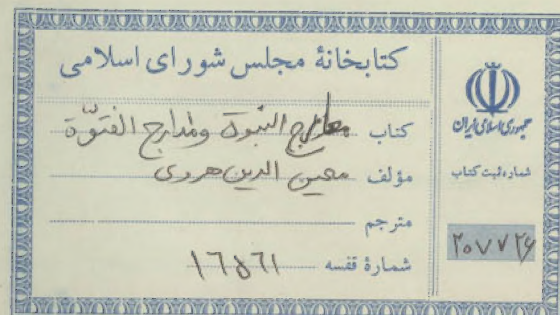 کتابخانهٔ مجلس شورای اسلامی
کتاب معارج النبوة ومدارج الفتوّة
مؤلف معین الدین هروی
مترجم
شمارهٔ قفسه ۱۶۵۶۱
جمهوری اسلامی ایران
شماره ثبت کتاب
۲۰۷۷۲۶